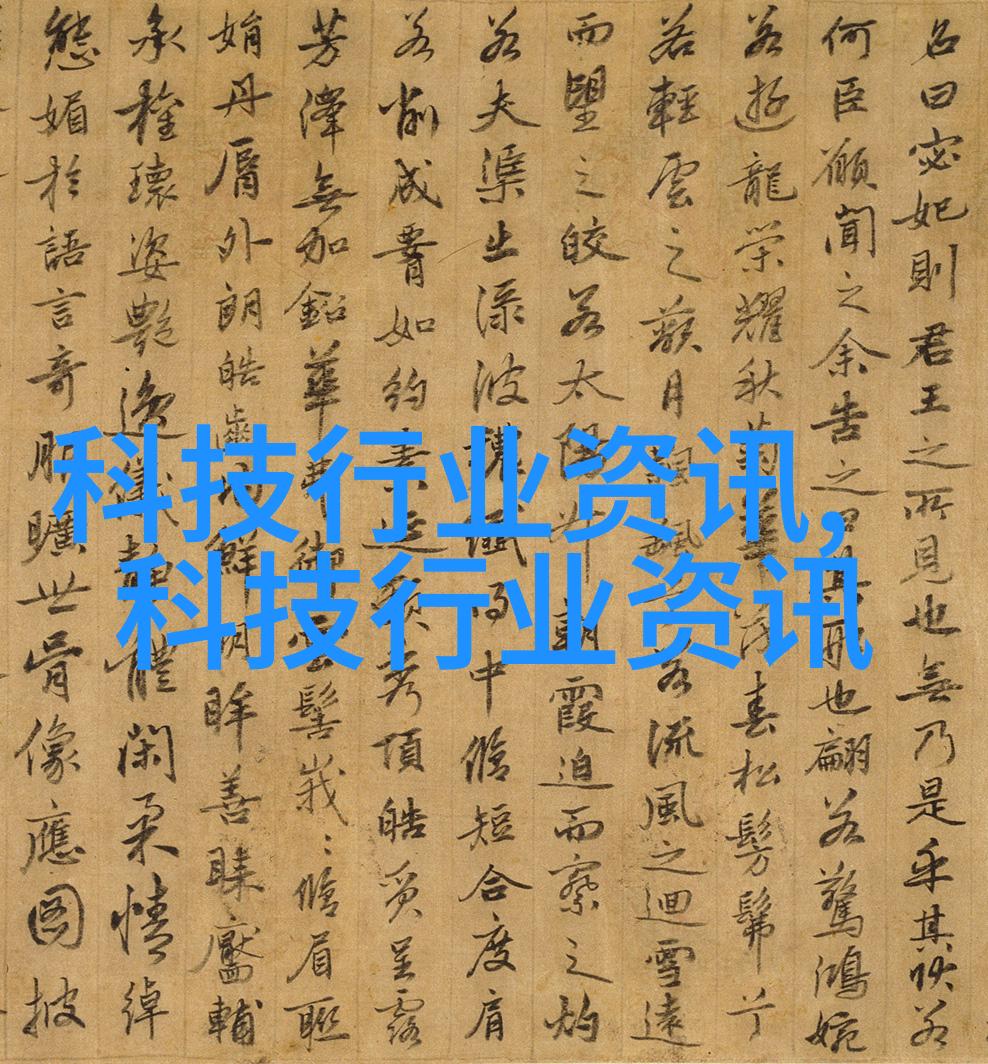 名曰宓妃則君王之所見也無乃是乎其狀若
何臣願聞之余告之曰其形也翩若驚鴻婉
若遊龍榮耀秋菊華茂春松髣髴兮
若輕雲之蔽月飄飄兮若流風之迴雪遠
而望之皎若太陽升朝霞迫而察之灼
若夫渠出淥波穠纖得中脩短合度肩
若削成腰如約素延頸秀項皓質呈露
芳澤無加鉛華弗御雲髻峩〻脩眉聯
娟丹脣外朗皓齒內鮮明眸善睞靨輔
承權瓌姿艷逸儀靜體閑柔情綽
態媚於語言奇服曠世骨像應圖披
科技行业资讯,
科技行业资讯